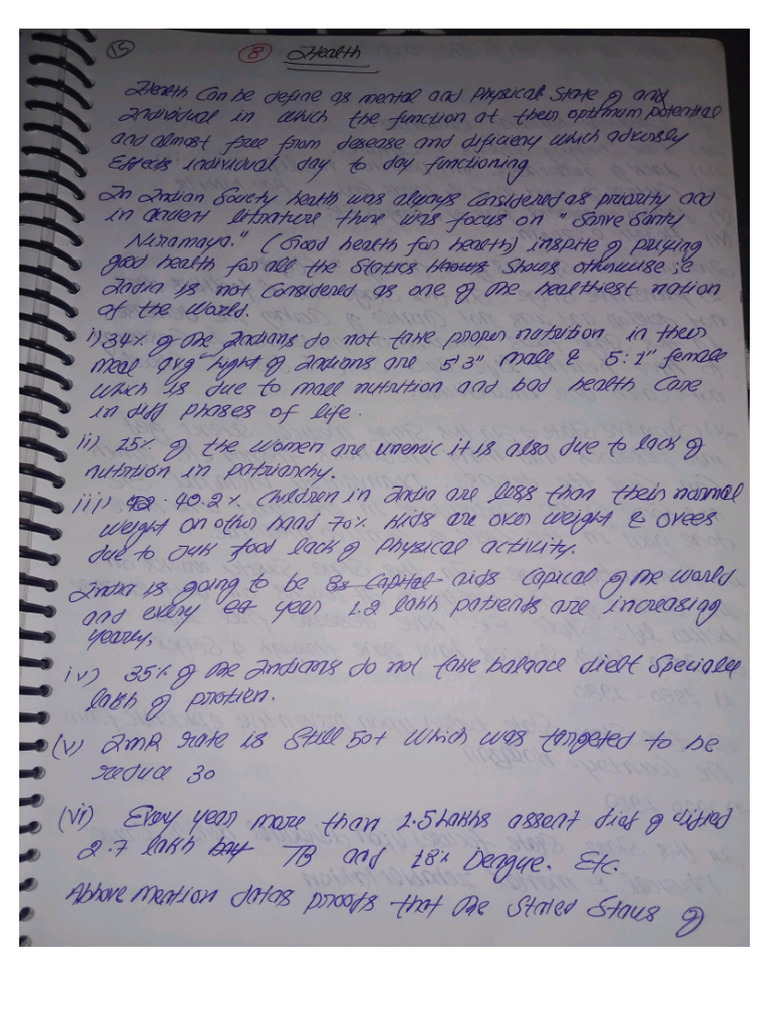 15 8 Health
Health Can be define as mental and Physical State of any
Individual in which the function at their optimum potential
and almost free from desease and dificiency which adversly
Effects individual day to day functioning
In Indian Society health was always Considered as priority and
in ancient literature there was focus on "Sarve Santu
Niramaya." (Good health for health) inspite of
good health for all the Statics Shows otherwise i.e
India is not Considered as one of the healthiest nation
of the World.
i) 34% of the Indians do not take proper nutrition in their
meal avg hight of Indians are 5'3" male & 5:1" female
Which is due to mall nutrition and bad health Care
in diff phases of life.
ii) 25% of the women are unemic it is also due to lack of
nutrition in patriarchy.
iii) 40.2% Children in India are less than their normal
weight on other hand 70% Kids are over weight &
due to Junk food lack of Physical activity.
India is going to be aids Capical of the world
and every year 1.2 lakh patients are increasing
yearly,
iv) 35% of the Indians do not take balance dielt Specially
lakh of protien.
(v) IMR rate is Still 50+ which was targeted to be
reduce 30
(vi) Every year more than 1.5 Lakhs
2.7 lakh TB and 18% Dengue. Etc.
Abhove mention datas proofs that the Stated Staus of